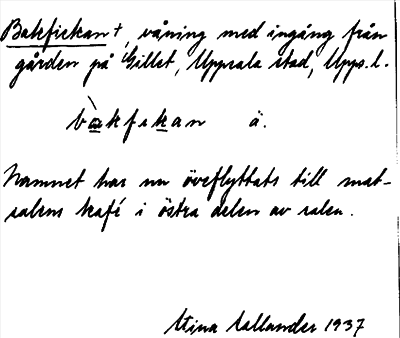 Bakfickan +, våning med ingång från
gården på Gillet, Uppsala stad, Upps. l.
bakfikan ä.
Namnet har nu överflyttats till mat-
salens kafé i östra delen av salen.
Stina Sallander 1937